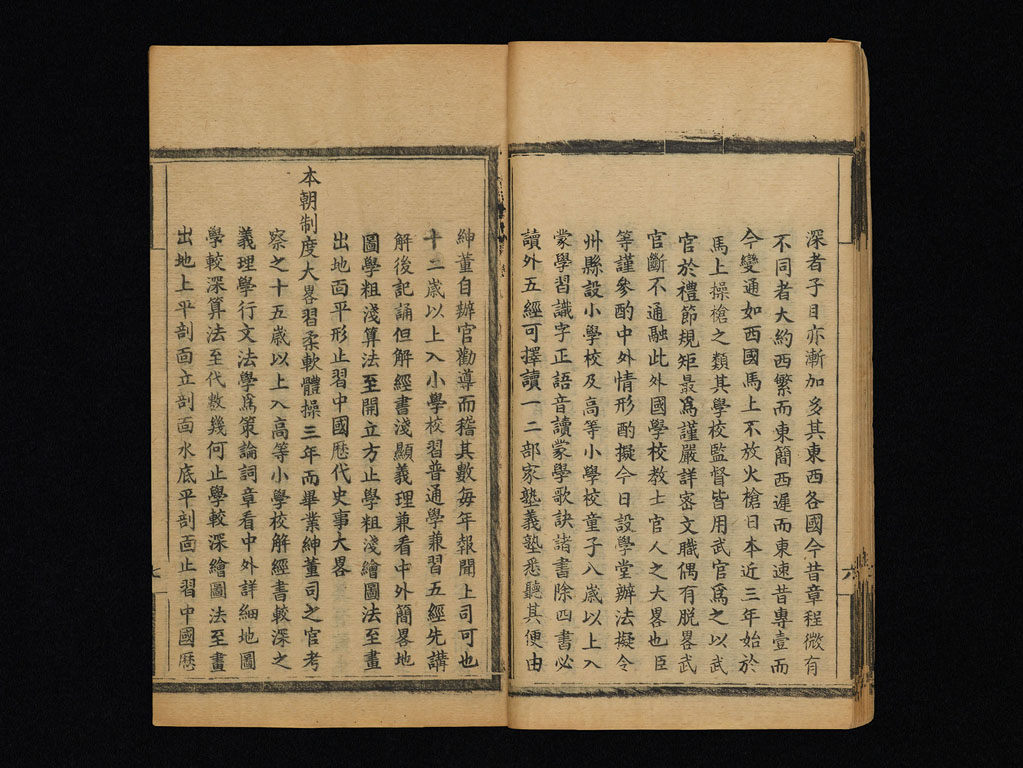 深者子目亦漸加多其東西各國今昔章程微有
不同者大約西繁而東簡西遲而東速昔專壹而
今變通如西國馬上不放火槍日本近三年始於
馬上操槍之類其學校監督皆用武官爲之以武
官於禮節規矩最爲謹嚴詳密文職偶有脱畧武
官斷不通融此外國學校教士官人之大畧也臣
等謹參酌中外情形酌擬今日設學堂辦法擬令
州縣設小學校及高等小學校童子八歲以上入
蒙學習識字正語音讀蒙學歌訣諸書除四書必
讀外五經可擇讀一二部家塾義塾悉聽其便由
六
紳董自辦官勸導而稽其數每年報聞上司可也
十二歲以上入小學校習普通學兼習五經先講
解後記誦但解經書淺顯義理兼看中外簡畧地
圖學粗淺算法至開立方止學粗淺繪圖法至畫
出地面平形止習中國歷代史事大畧
本朝制度大畧習柔軟體操三年而畢業紳董司之官考
察之十五歲以上入高等小學校解經書較深之
義理學行文法學爲策論詞章看中外詳細地圖
學較深算法至代數幾何止學較深繪圖法至畫
出地上平剖面立剖面水底平剖面止習中國歷